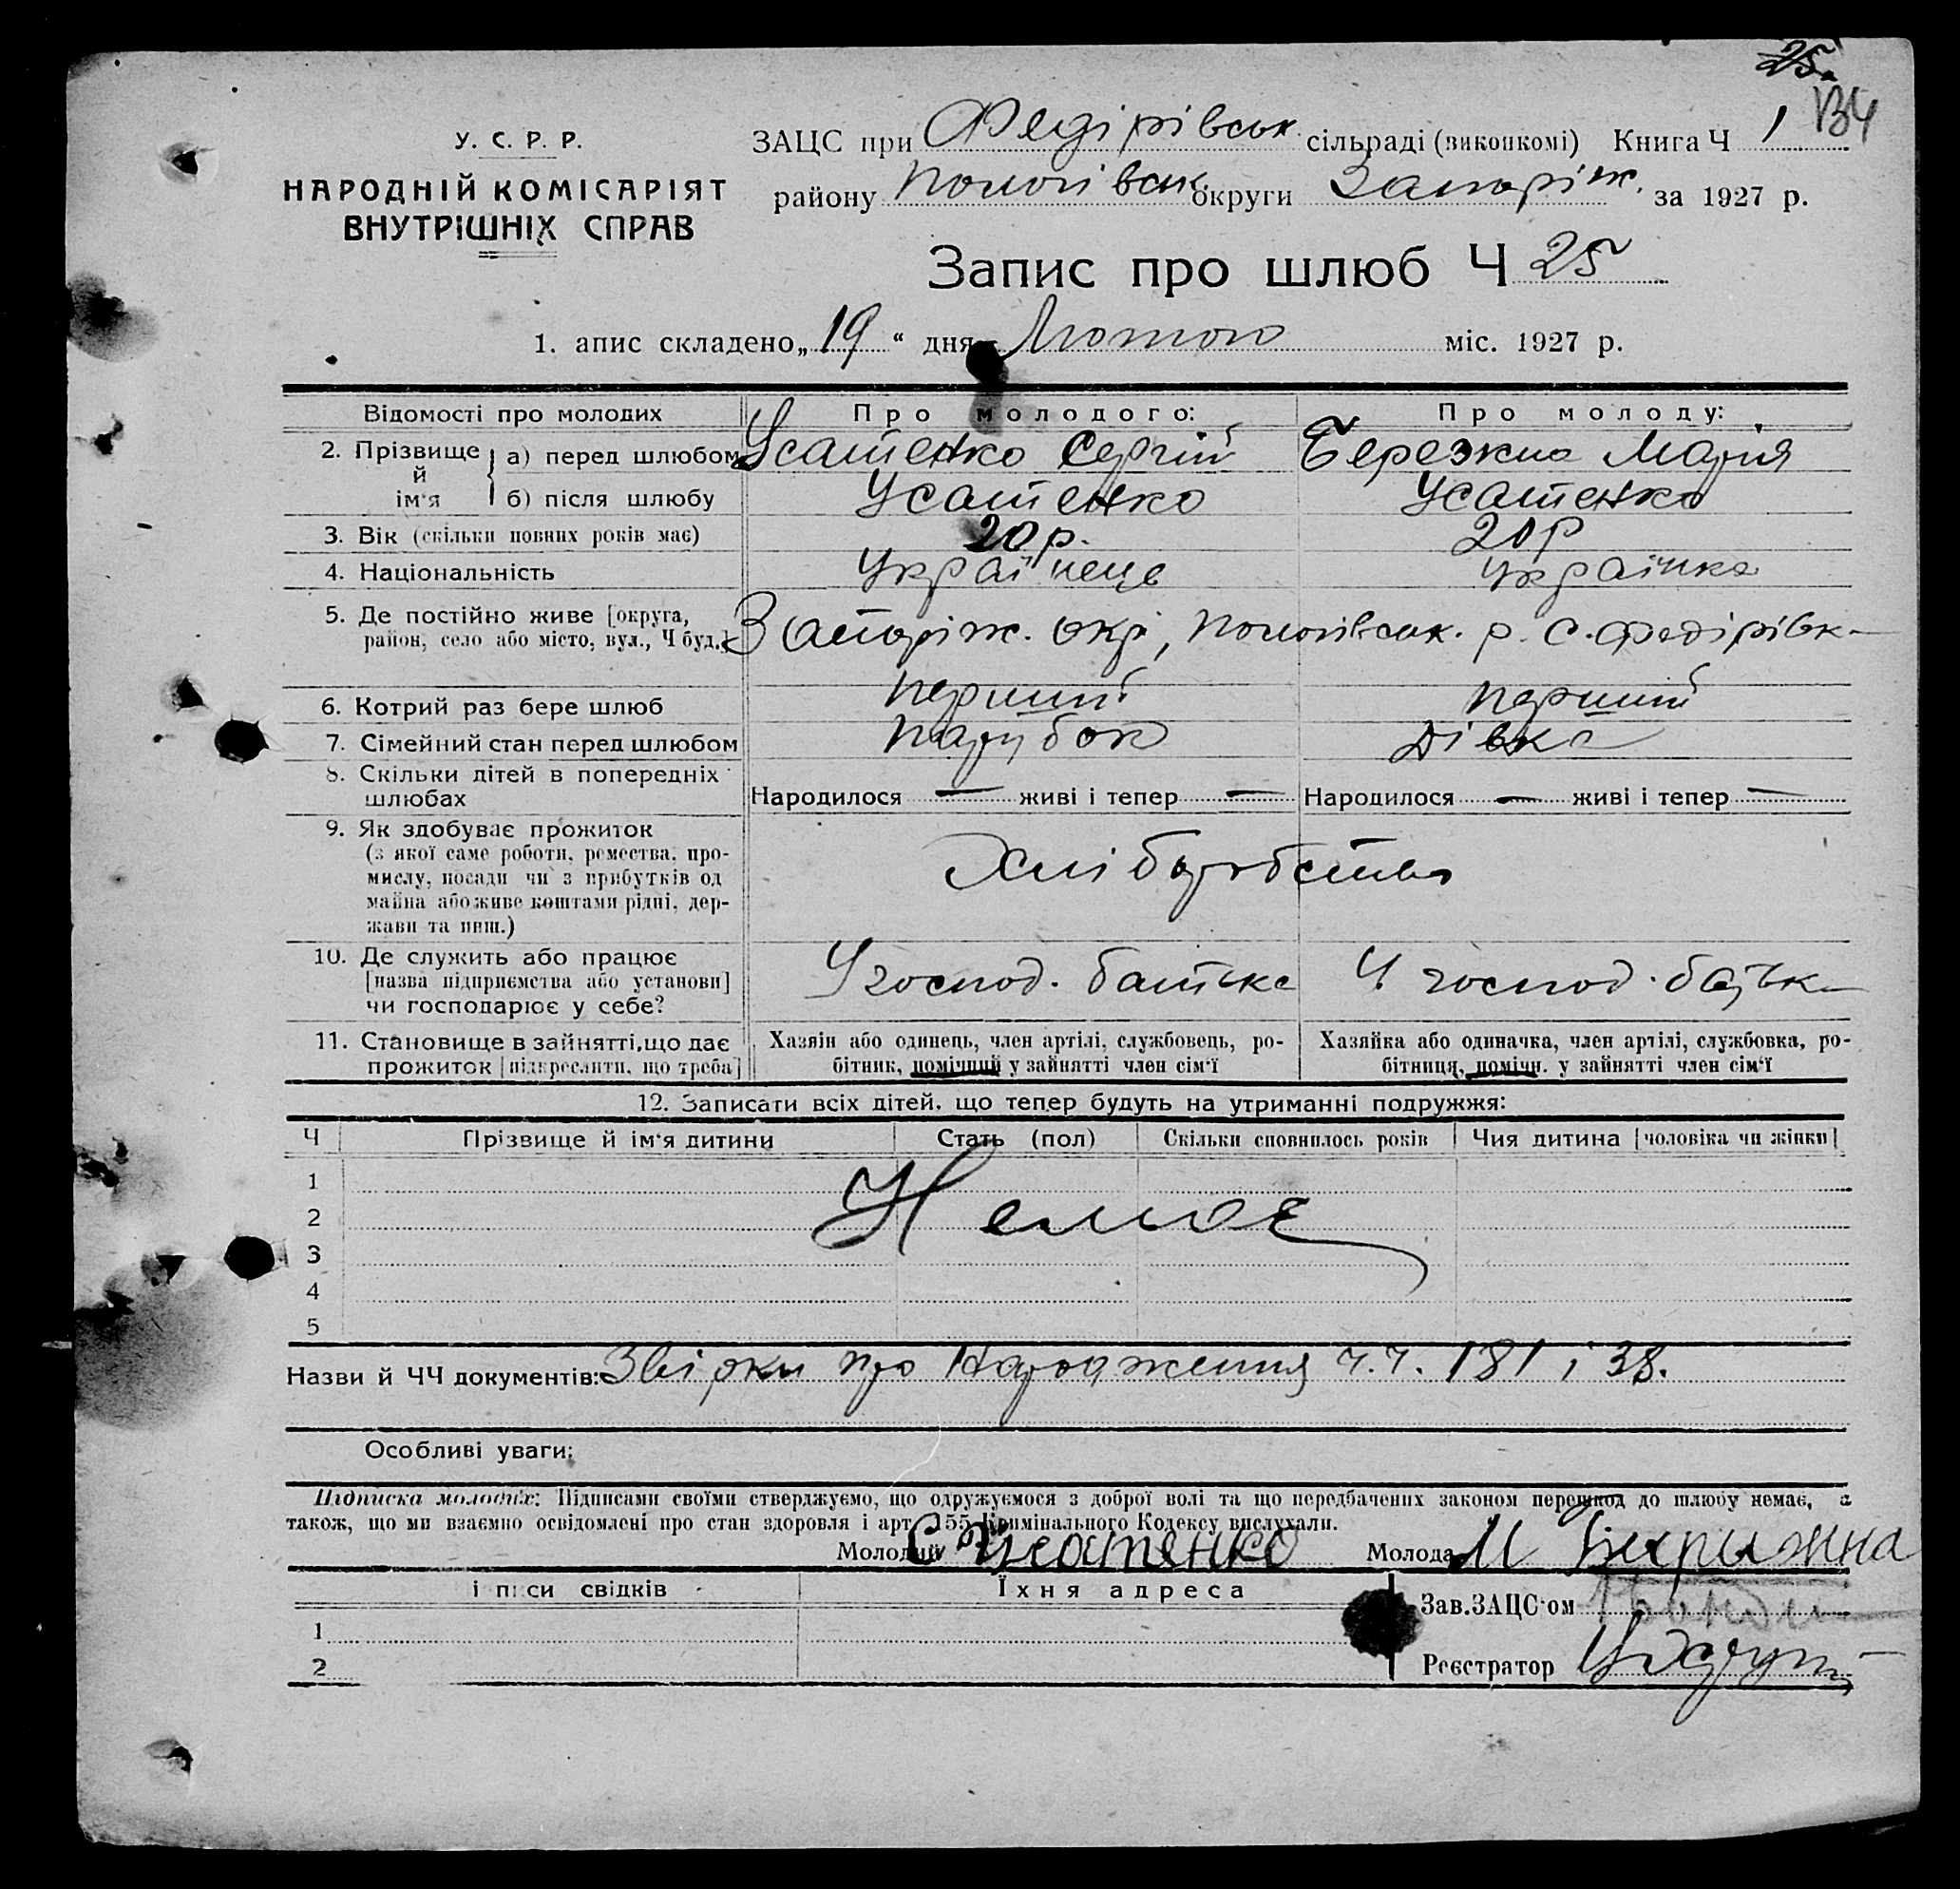 25.
134
У. С. Р. Р.
НАРОДНІЙ КОМІСАРІЯТ
ВНУТРІШНІХ СПРАВ
ЗАЦС при Федірівськ. сільраді (виконкомі) Книга Ч 1
району Пологівськ. округи Запоріж. за 1927 р.
Запис про шлюб Ч 25
1. апис складено „19“ дня Лютого міс. 1927 р.
Відомості про молодих Про молодого: Про молоду:
2. Прізвище й ім'я а) перед шлюбом Усатенко Сергій Бережна Марія
б) після шлюбу Усатенко Усатенко
3. Вік (скільки повних років має) 20 р. 20 р
4. Національність Українець Українка
5. Де постійно живе [округа,
район, село або місто, вул., Ч буд.] Запоріж. окр, Пологівськ. р. с. Федірівк
6. Котрий раз бере шлюб перший перший
7. Сімейний стан перед шлюбом парубок дівка
8. Скільки дітей в попередніх
шлюбах Народилося — живі і тепер — Народилося — живі і тепер —
9. Як здобуває прожиток
(з якої саме роботи, ремества, про-
мислу, посади чи з прибутків од
майна або живе коштами рідні, дер-
жави та инш.) Хліборобство
10. Де служить або працює
[назва підприємства або установи]
чи господарює у себе? У господ. батька У господ. батьк
11. Становище в зайнятті, що дає
прожиток [підкреслити, що треба]
Хазяїн або одинець, член артілі, службовець, ро-
бітник, помічний у зайнятті член сім'ї
Хазяйка або одиначка, член артілі, службовка, ро-
бітниця, помічн. у зайнятті член сім'ї
12. Записати всіх дітей, що тепер будуть на утриманні подружжя:
Ч Прізвище й ім'я дитини Стать (пол) Скільки сповнилось років Чия дитина [чоловіка чи жінки]
1
2 Немає
3
4
5
Назви й ЧЧ документів: Звірки про Народження ч.ч. 181 і 38.
Особливі уваги:
Підписка молодих: Підписами своїми стверджуємо, що одружуємося з доброї волі та що передбачених законом перешкод до шлюбу немає, а
також, що ми взаємно освідомлені про стан здоровля і арт. 155 Кримінального Кодексу вислухали.
Молодий С Усатенко Молода М
і писи свідків Їхня адреса
Зав. ЗАЦС-ом
1
Реєстратор
2